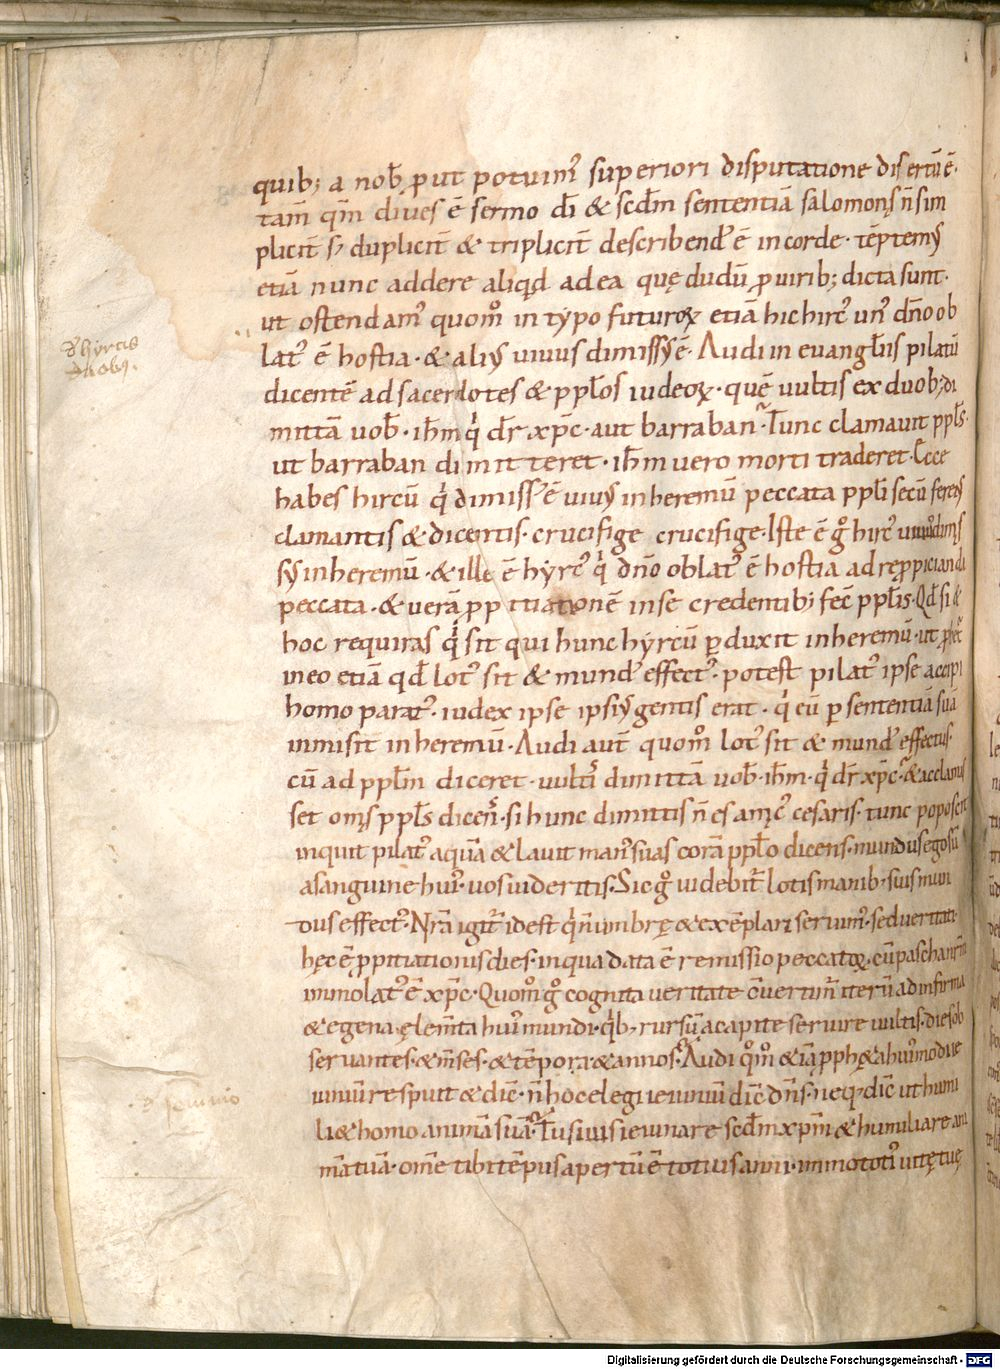 quib; a nob̄ ꝓut potuim᷒ superiori disputatione disertū ē·
tam̄ qm̄ dives ē sermo dī & scd̄m sententiā salomonis n̄ sim
plicit̄ s; duplicit̄ & triplicit̄ describend᷒ ē in corde· tēptem᷒
etiā nunc addere aliqd ad ea quę dudū ꝓ virib; dicta sunt·
ut ostendam᷒ quom̊ in typo futuroꝝ etiā hic hirc᷒ un᷒ dn̄o ob
lat᷒ ē hostia· & ali᷒ vivus dimiss᷒ ē· Audi in evangl̄iis pilatū
Thyrcis
duob;
dicentē ad sacerdotes & ppl̄os iudeoꝝ· quē vultis ex duob; di
mittā vob̄· ih̄m qͥ dr̄ xp̄c· aut barraban? Tunc clamavit ppl̄s·
ut barraban dimitteret· ih̄m vero morti traderet· Ecce
habes hircū qͥ dimiss᷒ ē viv᷒ in heremū peccata ppl̄i secū ferens
clamantis & dicentis· crucifige crucifige· Iste ē gͦ hirc᷒
s᷒ in heremū· & ille ē hyrc᷒ qͥ dn̄o oblat᷒ ē hostia ad repꝓpiciandi
peccata· & verā ꝓpitiationē in se credentib; fec̄ ppl̄is· Qd̄ si &
hoc requiras qͥs sit qui hunc hyrcū ꝑduxit in heremū· ut
in eo etiā qd̄ lot᷒ sit & mund᷒ effect᷒· potest pilat᷒ ipse accipi
homo parat᷒· iudex ipse ipsi᷒ gentis erat· qͥ eū ꝑ sententiā suā
inmisit in heremū· Audi aut̄ quom̊ lot᷒ sit & mund᷒ effectus·
cū ad ppl̄m diceret· vultis dimittā vob̄· ih̄m· qͥ dr̄ xp̄c? & acclamas
set om̄s ppl̄s dicen̄s· si hunc dimittis n̄ es amic᷒ cesaris· tunc poposcit
inquit pilat᷒ aquā & lavit man᷒ suas corā ppl̄o dicens· mundus ego sū
a sanguine hui᷒· vos videritis· Sic gͦ videbit̄ lotis manib; suis mun
dus effect᷒· Nr̄a igit̄ idest qͥ n̄ umbrę & exēplari servim᷒· sed veritati·
hęc ē ꝓpitiationis dies· in qua data ē remissio peccatoꝝ· cū pascha nr̄m
immolat᷒ ē xp̄c· Quom̊ gͦ cognita veritate cͦvertimͥ iterū ad infirma
& egena ęlem̄ta hui᷒ mundi· qͥb; rursū a capite servire vultis· dies ob
servantes· & m̄ses· & tēpora & annos? Audi qͦm̊ & iā ꝓph&a hui᷒modi ie
iuniū respuit & dic̄· n̄ hoc elegi ieiuniū dic̄ dn̄s· neq; dic̄ ut humi
li& homo animā suā? Tu si vis ieiunare scd̄m xp̄m & humiliare ani
mā tuā· om̄e tibi tēpus apertū ē totius anni· immo toti᷒ vitę tuę